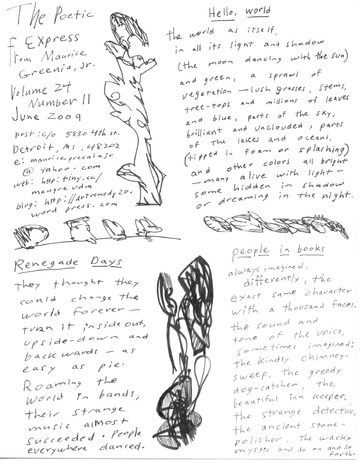 The Poetic
Express
from Maurice
Greenia, Jr.
Volume 24
Number 11
June 2009
post: c/o 5830 4th st.
Detroit, MI, 48202
e: mauricegreeniajr
@ yahoo.com
web: http://tiny.cc/
blog:
wordpress.com
Hello, world
the world as itself,
in all its light and shadow
(the moon dancing with the sun)
and green, a sprawl of
vegetation — lush grasses, stems,
tree-tops and millions of leaves
and blue, parts of the sky,
brilliant and unclouded, parts
of the lakes and oceans,
(tipped in foam or splashing)
and other colors all bright
— many alive with light —
some hidden in shadow
or dreaming in the night.
Renegade Days
They thought they
could change the
world forever —
turn it inside out,
upside-down and
backwards — as
easy as pie.
Roaming the
world in bands,
their strange
music almost
succeeded. People
everywhere danced.
people in books
always imagined,
differently, the
exact same character
with a thousand faces.
the sound and
tone of the voice,
sometimes imagined:
the kindly chimney-
sweep, the greedy
dog-catcher, the
beautiful inn keeper,
the strange detective,
the ancient stone-
polisher, the wacky
mystic and so on and so
forth.